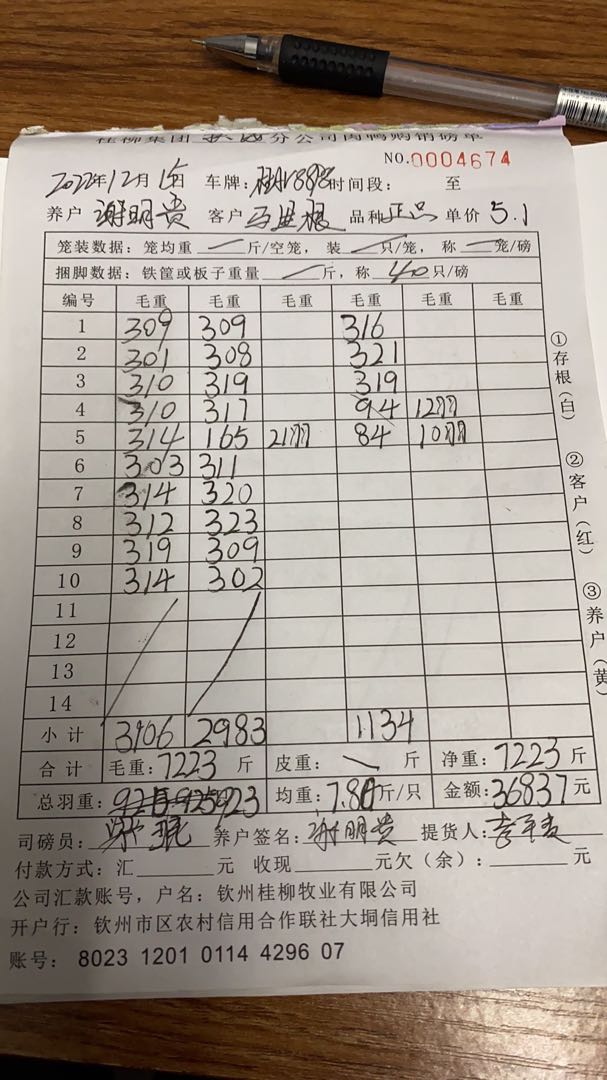 桂柳集团 分公司肉鸭购销磅单
NO.0004674
2022年12月 日 车牌: 时间段: 至
养户 谢明贵 客户 马进根 品种 正品 单价 5.1
笼装数据: 笼均重 一 斤/空笼, 装 一 只/笼, 称 一 笼/磅
捆脚数据: 铁筐或板子重量 一 斤, 称 40 只/磅
编号 毛重 毛重 毛重 毛重 毛重 毛重
1 309 309 316
2 301 308 321
3 310 319 319
4 310 317 94 12羽
5 314 165 21羽 84 10羽
6 303 311
7 314 320
8 312 323
9 319 309
10 314 302
11
12
13
14
小计 3106 2983 1134
合计 毛重: 7223 斤 皮重: 斤 净重: 7223 斤
总羽重: 923 均重: 斤/只 金额: 36837 元
司磅员: 养户签名: 谢明贵 提货人:
付款方式: 汇 元 收现 元欠(余): 元
公司汇款账号, 户名: 钦州桂柳牧业有限公司
开户行: 钦州市区农村信用合作联社大垌信用社
账号: 8023 1201 0114 4296 07
①存根(白)
②客户(红)
③养户(黄)